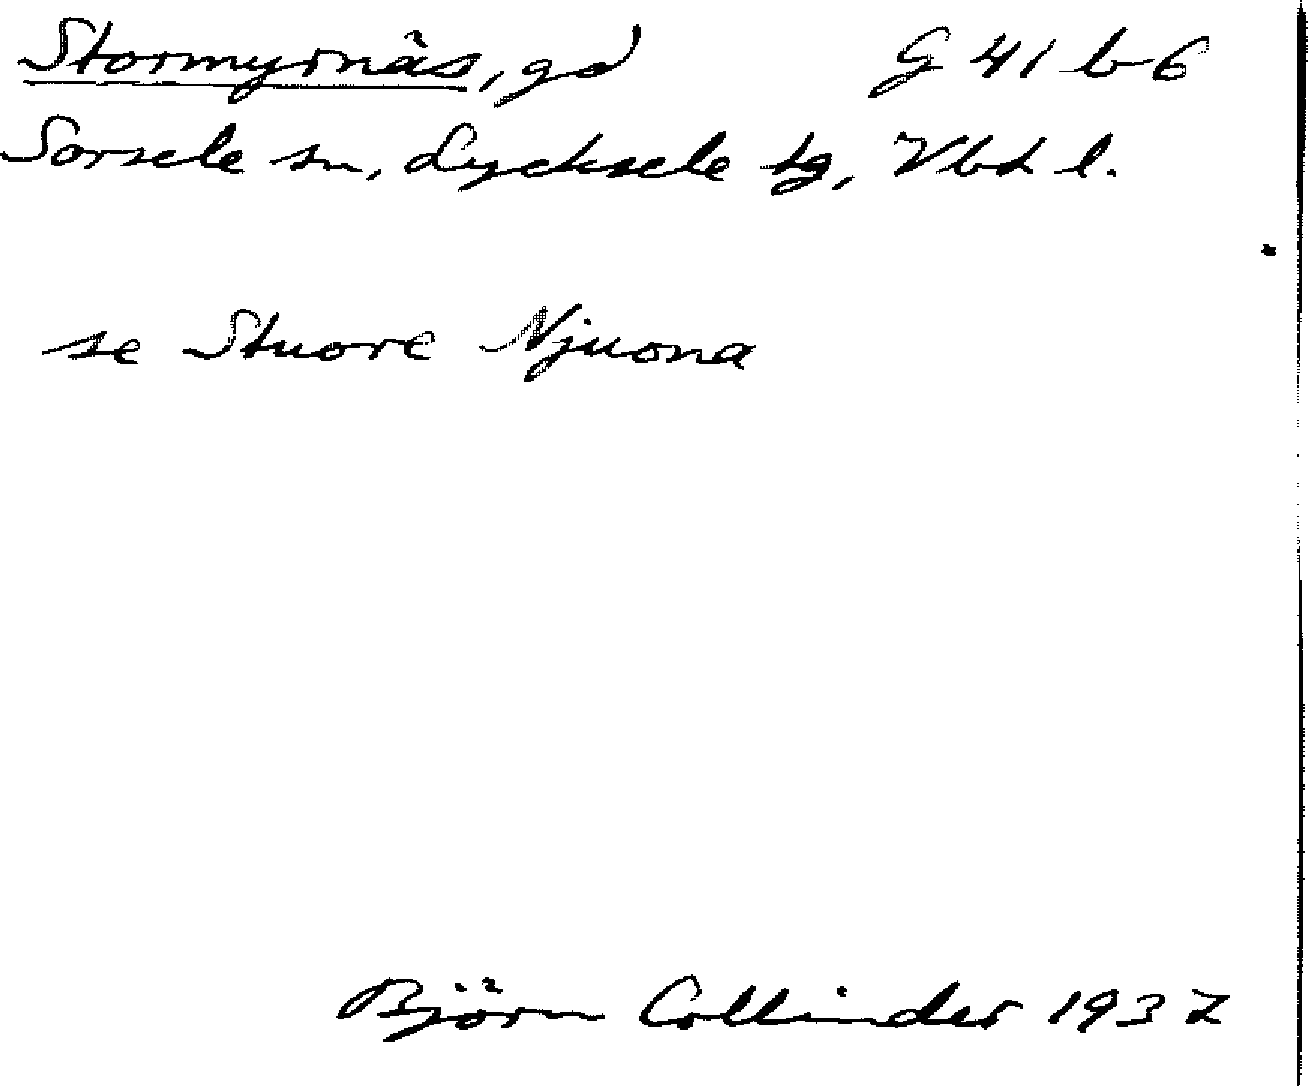 Stormyrnäs, gd G 41 b 6
Sorsele sn, Lycksele tg, Vbd l.
se Stuore Njuona
Björn Collinder 1937